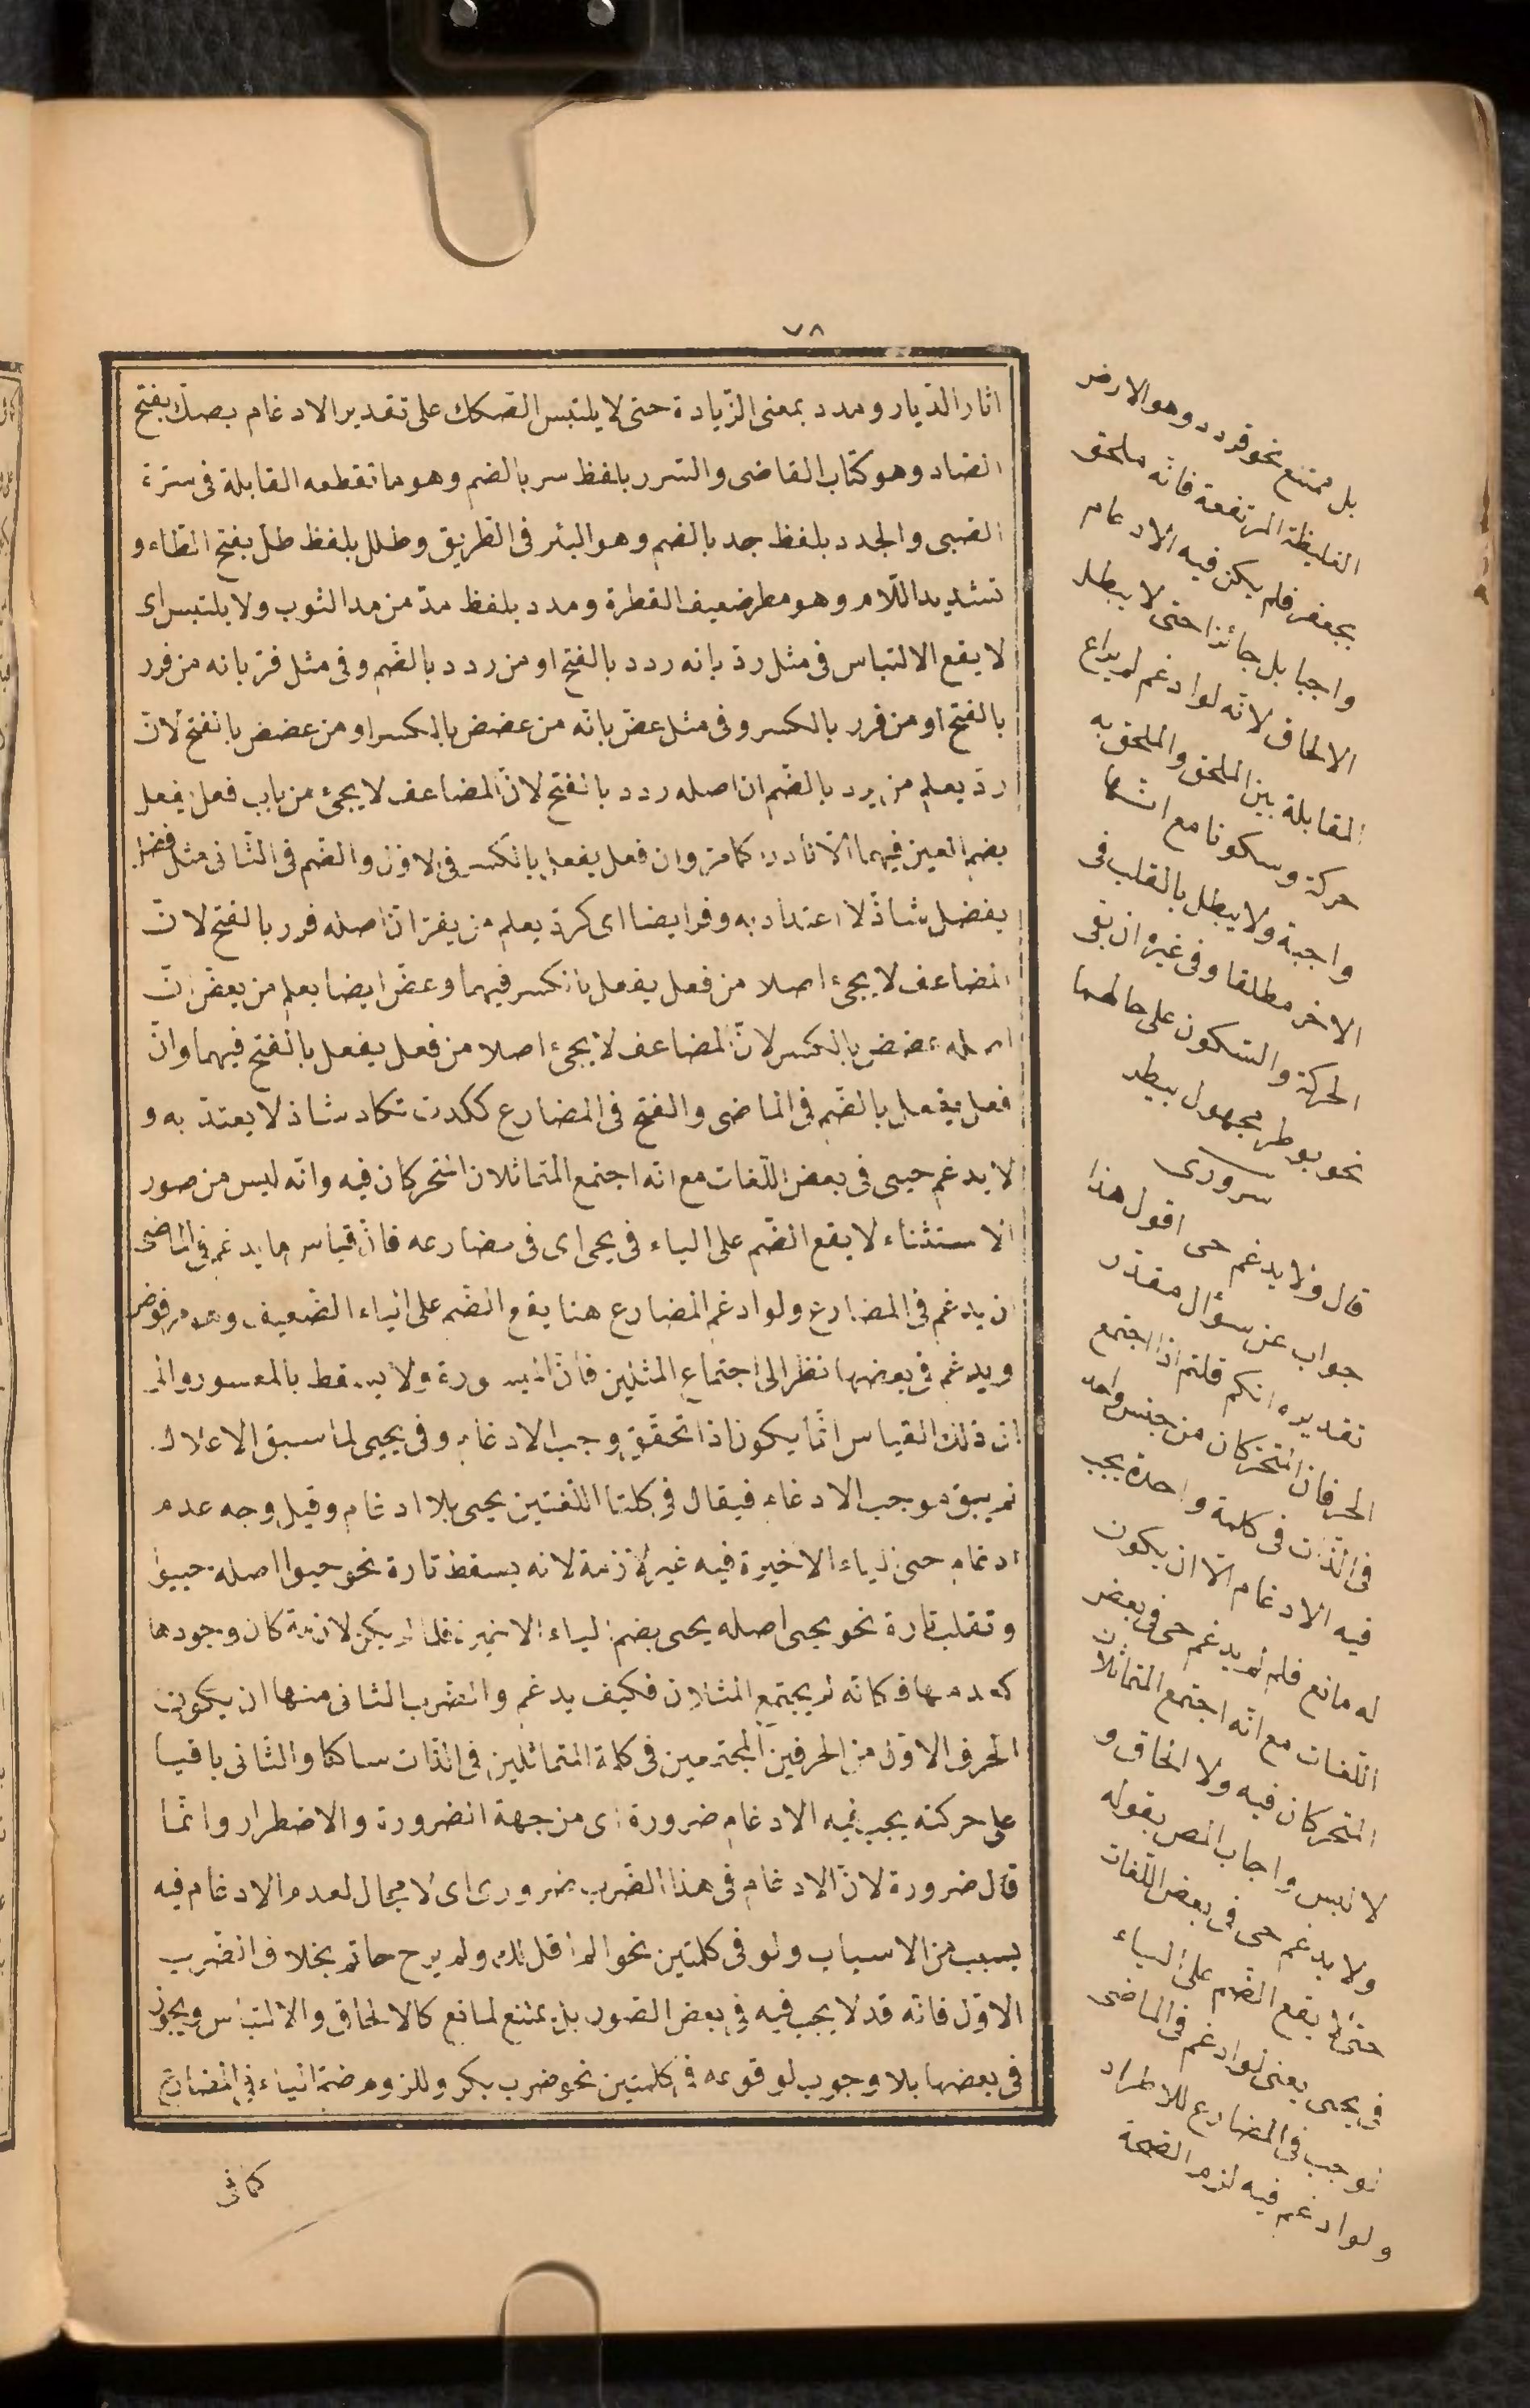 ٧٨
اثار الدّيار ومدد بمعنى الزّيادة حتى لا يلتبس الصّكك على تقدير الادغام بصكّ بفتح
الصّاد وهو كتاب القاضى والسّرر بلفظ سر بالضم وهو ما تقطعه القابلة فى سترة
الصّبى والجدد بلفظ جد بالضم وهو البئر فى الطّريق وطلل بلفظ طل بفتح الطّاء و
تشديد اللّام وهو مطر ضعيف القطرة ومدد بلفظ مدّ من مد الثوب ولا يلتبس اى
لا يقع الالتباس فى مثل ردّ بانه ردد بالفتح او من ردد بالضّم وفى مثل فرّ بانه من فرر
بالفتح او من فرر بالكسر وفى مثل عضّ بانّه من عضض بالكسر او من عضض بالفتح لانّ
ردّ يعلم من يرد بالضّم ان اصله ردد بالفتح لانّ المضاعف لا يجئ من باب فعل يفعل
بضم العين فيهما الّا نادرا كما مر وان فعل يفعل بالكسر فى الاوّل والضم فى الثّانى مثل فضل
يفضل شاذّ لا اعتداد به وفرّ ايضا اى كردّ يعلم من يفرّ انّ اصله فرر بالفتح لانّ
المضاعف لا يجئ اصلا من فعل يفعل بالكسر فيهما وعضّ ايضا يعلم من يعضّ انّ
اصله عضض بالكسر لانّ المضاعف لا يجئ اصلا من فعل يفعل بالفتح فيهما وانّ
فعل يفعل بالضّم فى الماضى والفتح فى المضارع ككدت تكاد شاذ لا يعتدّ به و
لا يدغم حيى فى بعض اللّغات مع انّه اجتمع المتماثلان المتحركان فيه وانّه ليس من صور
الاستثناء لا يقع الضّم على الياء فى يحى اى فى مضارعه فانّ قياس ما يدغم فى الماضى
ان يدغم فى المضارع ولو ادغم المضارع هنا يقع الضّم على الياء الضّعيف وهو مرفوض
ويدغم فى بعضها نظرا الى اجتماع المثلين فانّ الميسورة ولا يسقط بالمعسور والى
ان ذلك القياس انّما يكون اذا تحقّق وجب الادغام وفى يحيى لما سبق الاعلال
لم يبق موجب الادغام فيقال فى كلتا اللّغتين يحيى بلا ادغام وقيل وجه عدم
ادغام حيى الياء الاخيرة فيه غير لازمة لانه يسقط تارة نحو حيوا اصله حييوا
وتقلب تارة نحو يحيى اصله يحيى بضم الياء الاخيرة فلما لم يكن لازمة كان وجودها
كعدمها فكانّه لم يجتمع المثلان فكيف يدغم والضرب الثانى منها ان يكون
الحرف الاوّل من الحرفين المجتمعين فى كلمة المتماثلين فى الذّات ساكنا والثّانى باقيا
على حركته يجب فيه الادغام ضرورة اى من جهة الضرورة والاضطرار وانّما
قال ضرورة لانّ الادغام فى هذا الضّرب ضرورى اى لا مجال لعدم الادغام فيه
بسبب من الاسباب ولو فى كلمتين نحو الم اقل لك ولم يرح حاتم بخلاف الضّرب
الاوّل فانّه قد لا يجب فيه فى بعض الصّور بل يمتنع لمانع كالالحاق والالتباس ويجوز
فى بعضها بلا وجوب لوقوعه فى كلمتين نحو ضرب بكر وللزوم ضمّة الياء فى المضارع
كما فى
بل ممتنع نحو قردد وهو الارض
الغليظة المرتفعة فانّه ملحق
بجعفر فلم يكن فيه الادغام
واجبا بل جائزا حتى لا يبطل
الالحاق لانّه لو ادغم لم يراع
المقابلة بين الملحق والملحق به
حركة وسكونا مع انّها
واجبة ولا يبطل بالقلب فى
الاخر مطلقا وفى غيره ان بقى
الحركة والسّكون على حالهما
نحو بوطر مجهول بيطر
سرورى
قال ولا يدغم حى اقول هذا
جواب عن سؤال مقدّر
تقديره انكم قلتم اذا اجتمع
الحرفان المتحرّكان من جنس واحد
فى الذّات فى كلمة واحدة يجب
فيه الادغام الّا ان يكون
له مانع فلم لم يدغم حى فى بعض
اللّغات مع انّه اجتمع المتماثلان
المتحركان فيه ولا الحاق و
لا لبس واجاب المص بقوله
ولا يدغم حى فى بعض اللّغات
حتى لا يقع الضّم على الياء
فى يحيى يعنى لو ادغم فى الماضى
لوجب فى المضارع للاطراد
ولو ادغم فيه لزم الضّمة